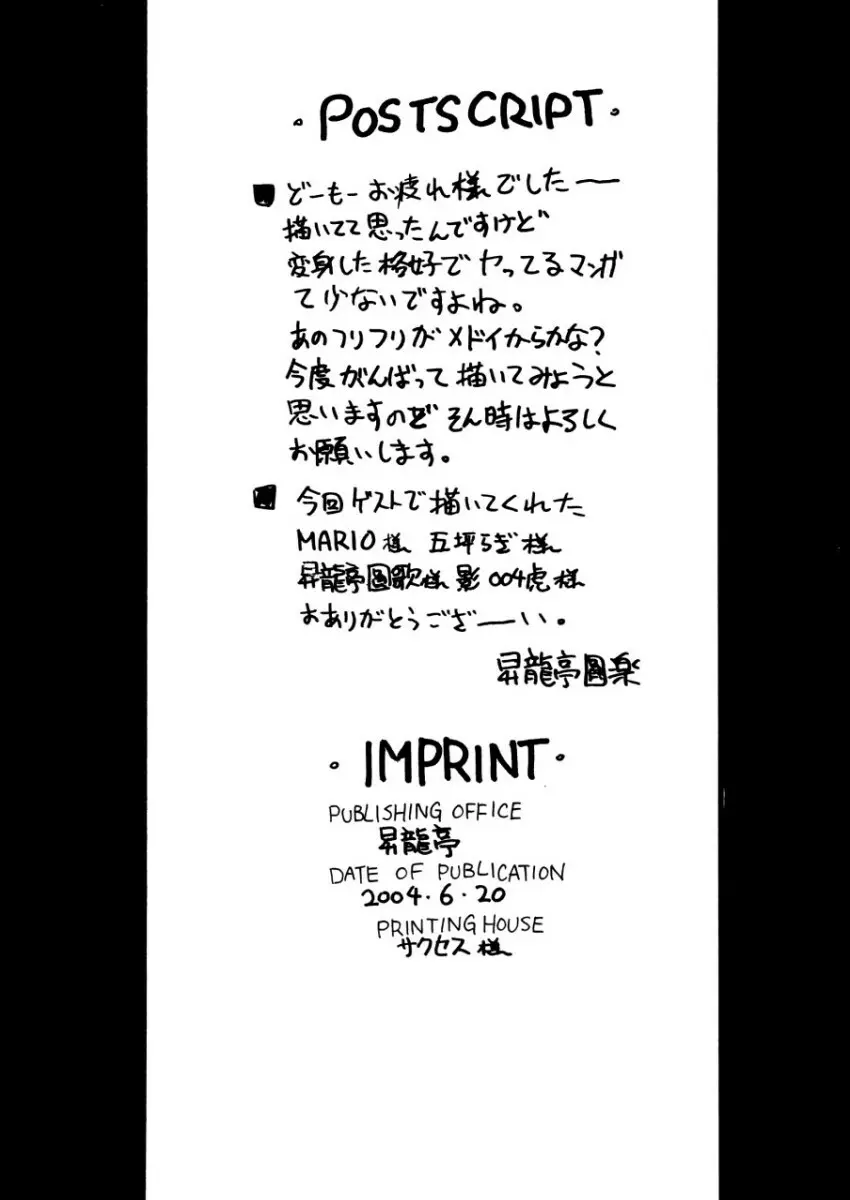 ・POSTSCRIPT・
■どーもーお疲れ様でしたー
描いてて思ったんですけど
変身した格好でヤってるマンガ
て少ないですよね。
あのフリフリがメドイからかな?
今度がんばって描いてみようと
思いますのでそん時はよろしく
お願いします。
■今回ゲストで描いてくれた
MARIO様 五坪らぎ様
昇龍亭圓歌様 影004虎様
おありがとうござーい。
昇龍亭圓楽
・IMPRINT・
PUBLISHING OFFICE
昇龍亭
DATE OF PUBLICATION
2004・6・20
PRINTING HOUSE
サクセス様